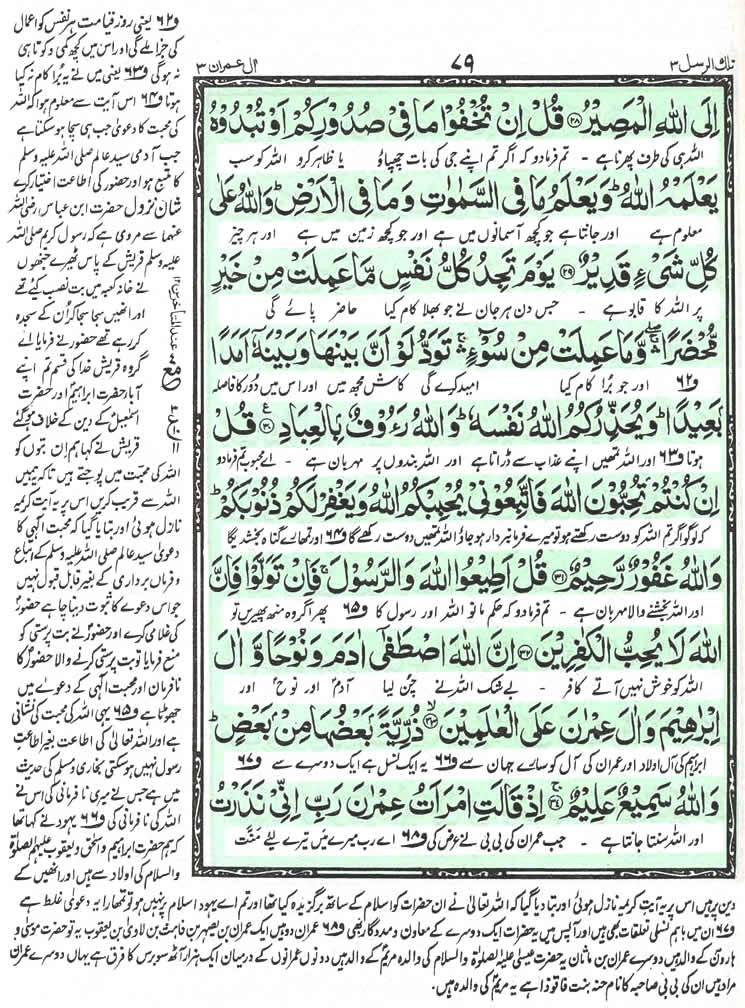 تلك الرسل ٣
٧٩
اٰل عمران ٣
اِلَى اللّٰهِ الْمَصِیْرُ ۝۲۸ قُلْ اِنْ تُخْفُوْا مَا فِیْ صُدُوْرِكُمْ اَوْ تُبْدُوْهُ
اللہ ہی کی طرف پھرنا ہے - تم فرما دو کہ اگر تم اپنے جی کی بات چھپاؤ یا ظاہر کرو اللہ کو سب
یَعْلَمْهُ اللّٰهُ ؕ وَیَعْلَمُ مَا فِی السَّمٰوٰتِ وَمَا فِی الْاَرْضِ ؕ وَاللّٰهُ عَلٰی
معلوم ہے اور جانتا ہے جو کچھ آسمانوں میں ہے اور جو کچھ زمین میں ہے اور ہر چیز
كُلِّ شَیْءٍ قَدِیْرٌ ۝۲۹ یَوْمَ تَجِدُ كُلُّ نَفْسٍ مَّا عَمِلَتْ مِنْ خَیْرٍ
پر اللہ کا قابو ہے - جس دن ہر جان نے جو بھلا کام کیا حاضر پائے گی
مُّحْضَرًا ۛۖۚ وَّمَا عَمِلَتْ مِنْ سُوْٓءٍ ۛۚ تَوَدُّ لَوْ اَنَّ بَیْنَهَا وَبَیْنَهٗۤ اَمَدًۢا
و۶۲ اور جو برا کام کیا امید کرے گی کاش مجھ میں اور اس میں دور کا فاصلہ
بَعِیْدًا ؕ وَیُحَذِّرُكُمُ اللّٰهُ نَفْسَهٗ ؕ وَاللّٰهُ رَءُوْفٌۢ بِالْعِبَادِ ۝۳۰ قُلْ
ہوتا و۶۳ اور اللہ تمہیں اپنے عذاب سے ڈراتا ہے اور اللہ بندوں پر مہربان ہے - اے محبوب تم فرما دو
اِنْ كُنْتُمْ تُحِبُّوْنَ اللّٰهَ فَاتَّبِعُوْنِیْ یُحْبِبْكُمُ اللّٰهُ وَیَغْفِرْ لَكُمْ ذُنُوْبَكُمْ ؕ
کہ لوگو اگر تم اللہ کو دوست رکھتے ہو تو میرے فرمانبردار ہو جاؤ اللہ تمہیں دوست رکھے گا و۶۴ اور تمہارے گناہ بخش دیگا
وَاللّٰهُ غَفُوْرٌ رَّحِیْمٌ ۝۳۱ قُلْ اَطِیْعُوا اللّٰهَ وَالرَّسُوْلَ ۚ فَاِنْ تَوَلَّوْا فَاِنَّ
اور اللہ بخشنے والا مہربان ہے - تم فرما دو کہ حکم مانو اللہ اور رسول کا و۶۵ پھر اگر وہ منھ پھیریں تو
اللّٰهَ لَا یُحِبُّ الْكٰفِرِیْنَ ۝۳۲ اِنَّ اللّٰهَ اصْطَفٰۤی اٰدَمَ وَنُوْحًا وَّاٰلَ
اللہ کو خوش نہیں آتے کافر - بے شک اللہ نے چن لیا آدم اور نوح اور
اِبْرٰهِیْمَ وَاٰلَ عِمْرٰنَ عَلَی الْعٰلَمِیْنَ ۝۳۳ ذُرِّیَّةًۢ بَعْضُهَا مِنْۢ بَعْضٍ ؕ
ابراہیم کی آل اولاد اور عمران کی آل کو سارے جہان سے و۶۶ یہ ایک نسل ہے ایک دوسرے سے و۶۷
وَاللّٰهُ سَمِیْعٌ عَلِیْمٌ ۝۳۴ اِذْ قَالَتِ امْرَاَتُ عِمْرٰنَ رَبِّ اِنِّیْ نَذَرْتُ
اور اللہ سنتا جانتا ہے - جب عمران کی بی بی نے عرض کی و۶۸ اے رب میرے میں تیرے لئے منّت
و۶۲ یعنی روز قیامت ہر نفس کو اعمال
کی جزا ملے گی اور اس میں کچھ کمی و کوتاہی
نہ ہوگی و۶۳ یعنی میں نے یہ برا کام نہ کیا
ہوتا و۶۴ اس آیت سے معلوم ہوا کہ اللہ
کی محبت کا دعویٰ جب ہی سچا ہو سکتا ہے
جب آدمی سید عالم صلی اللہ علیہ وسلم
کا متبع ہو اور حضور کی اطاعت اختیار کرے
شان نزول حضرت ابن عباس رضی اللہ
عنہما سے مروی ہے کہ رسول کریم صلی اللہ
علیہ وسلم قریش کے پاس ٹھیرے جنھوں
نے خانہ کعبہ میں بت نصب کیے تھے
اور انھیں سجا سجا کر ان کے سجدہ
کر رہے تھے حضور نے فرمایا اے
گروہ قریش خدا کی قسم تم اپنے
آباء حضرت ابراہیم اور حضرت
اسمٰعیل کے دین کے خلاف ہو گئے
قریش نے کہا ہم ان بتوں کو
اللہ کی محبت میں پوجتے ہیں تاکہ یہ ہمیں
اللہ سے قریب کریں اس پر یہ آیت کریمہ
نازل ہوئی اور بتایا گیا کہ محبت الٰہی کا
دعویٰ سید عالم صلی اللہ علیہ وسلم کے اتباع
و فرماں برداری کے بغیر قابل قبول نہیں
جو اس دعوے کا ثبوت دینا چاہے حضور
کی غلامی کرے اور حضور نے بت پرستی کو
منع فرمایا تو بت پرستی کرنے والا حضور کا
نافرمان اور محبت الٰہی کے دعوے میں
جھوٹا ہے و۶۵ یہی اللہ کی محبت کی نشانی
ہے اور اللہ تعالیٰ کی اطاعت بغیر اطاعت
رسول نہیں ہو سکتی بخاری و مسلم کی حدیث
میں ہے جس نے میری نافرمانی کی اس نے
اللہ کی نافرمانی کی و۶۶ یہود نے کہا تھا
کہ ہم حضرت ابراہیم و اسحٰق و یعقوب علیہم الصلوٰۃ
والسلام کی اولاد سے ہیں اور انھیں کے
دین پر ہیں اس پر یہ آیت کریمہ نازل ہوئی اور بتا دیا گیا کہ اللہ تعالیٰ نے ان حضرات کو اسلام کے ساتھ برگزیدہ کیا تھا اور تم اے یہود اسلام پر نہیں ہو تو تمھارا یہ دعویٰ غلط ہے
و۶۷ ان میں باہم نسلی تعلقات بھی ہیں اور آپس میں یہ حضرات ایک دوسرے کے معاون و مددگار بھی و۶۸ عمران دو ہیں ایک عمران بن یصہر بن فاہث بن لاوی بن یعقوب یہ تو حضرت موسیٰ و
ہارون کے والد ہیں دوسرے عمران بن ماثان یہ حضرت عیسیٰ علیہ الصلوٰۃ والسلام کی والدہ مریم کے والد ہیں دونوں عمرانوں کے درمیان ایک ہزار آٹھ سو برس کا فرق ہے یہاں دوسرے عمران
مراد ہیں ان کی بی بی صاحبہ کا نام حنہ بنت فاقوذا ہے یہ مریم کی والدہ ہیں.